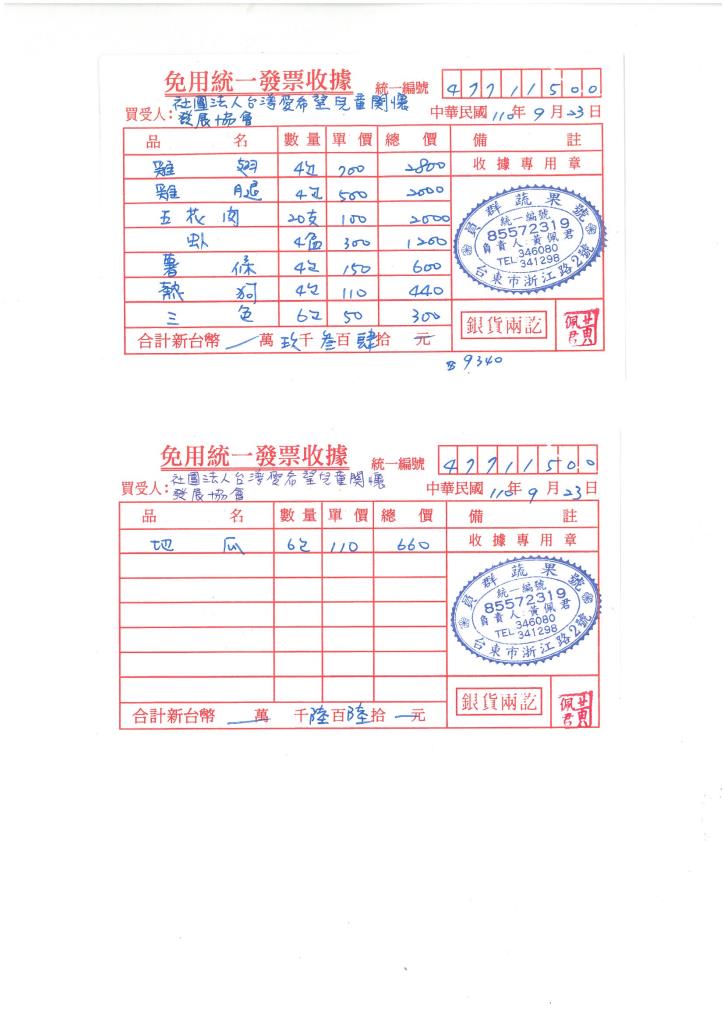 免用統一發票收據
統一編號 47711500
買受人：社團法人台灣愛希望兒童關懷
發展協會
中華民國110年9月23日
品名 數量 單價 總價 備註
雞翅 4包 700 2800 收據專用章
雞腿 4包 500 2000
五花肉 20支 100 2000
4包 300 1200
薯條 4包 150 600
熱狗 4包 110 440
三色 6包 50 300
員群蔬果號
統一編號
85572319
負責人:黃佩君
346080
TEL 341298
台東市浙江路2號
銀貨兩訖
黃佩君
合計新台幣 萬玖千叁百肆拾元
9340
免用統一發票收據
統一編號 47711500
買受人：社團法人台灣愛希望兒童關懷
發展協會
中華民國110年9月23日
品名 數量 單價 總價 備註
地瓜 6包 110 660 收據專用章
員群蔬果號
統一編號
85572319
負責人:黃佩君
346080
TEL 341298
台東市浙江路2號
銀貨兩訖
黃佩君
合計新台幣 萬 千陸百陸拾元